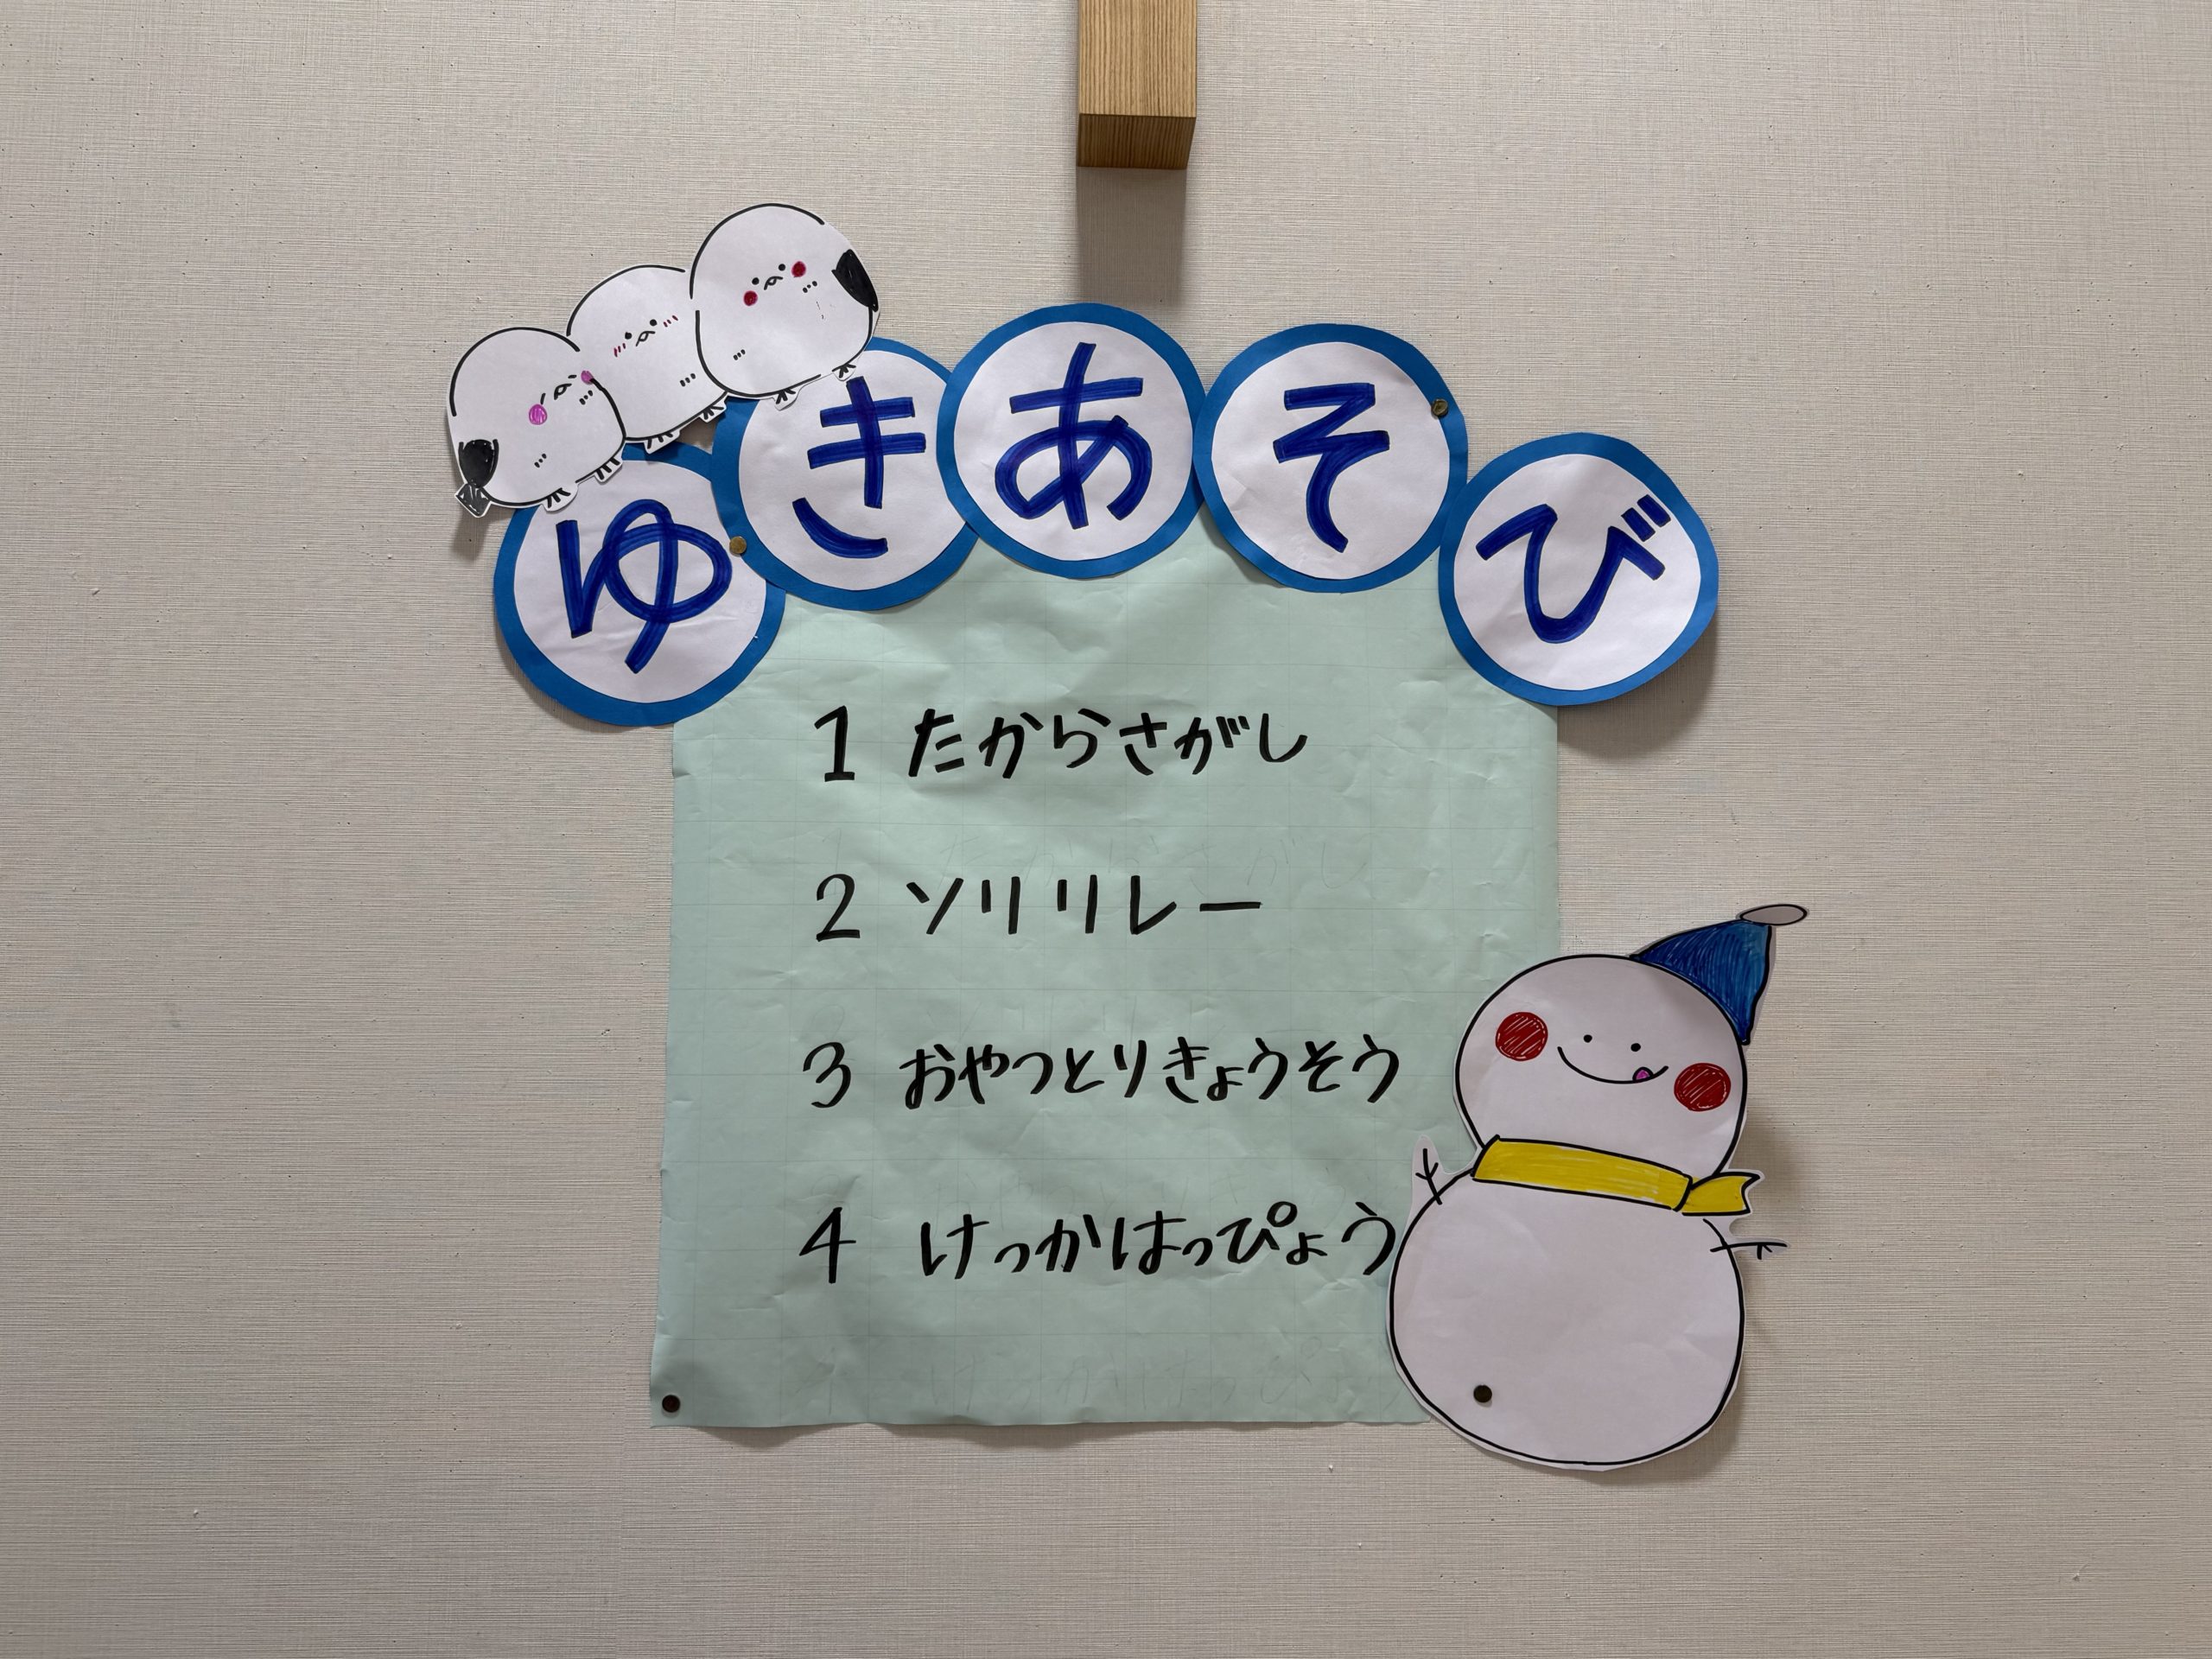 ゆきあそび
1 たからさがし
2 ソリリレー
3 おやつとりきょうそう
4 けっかはっぴょう